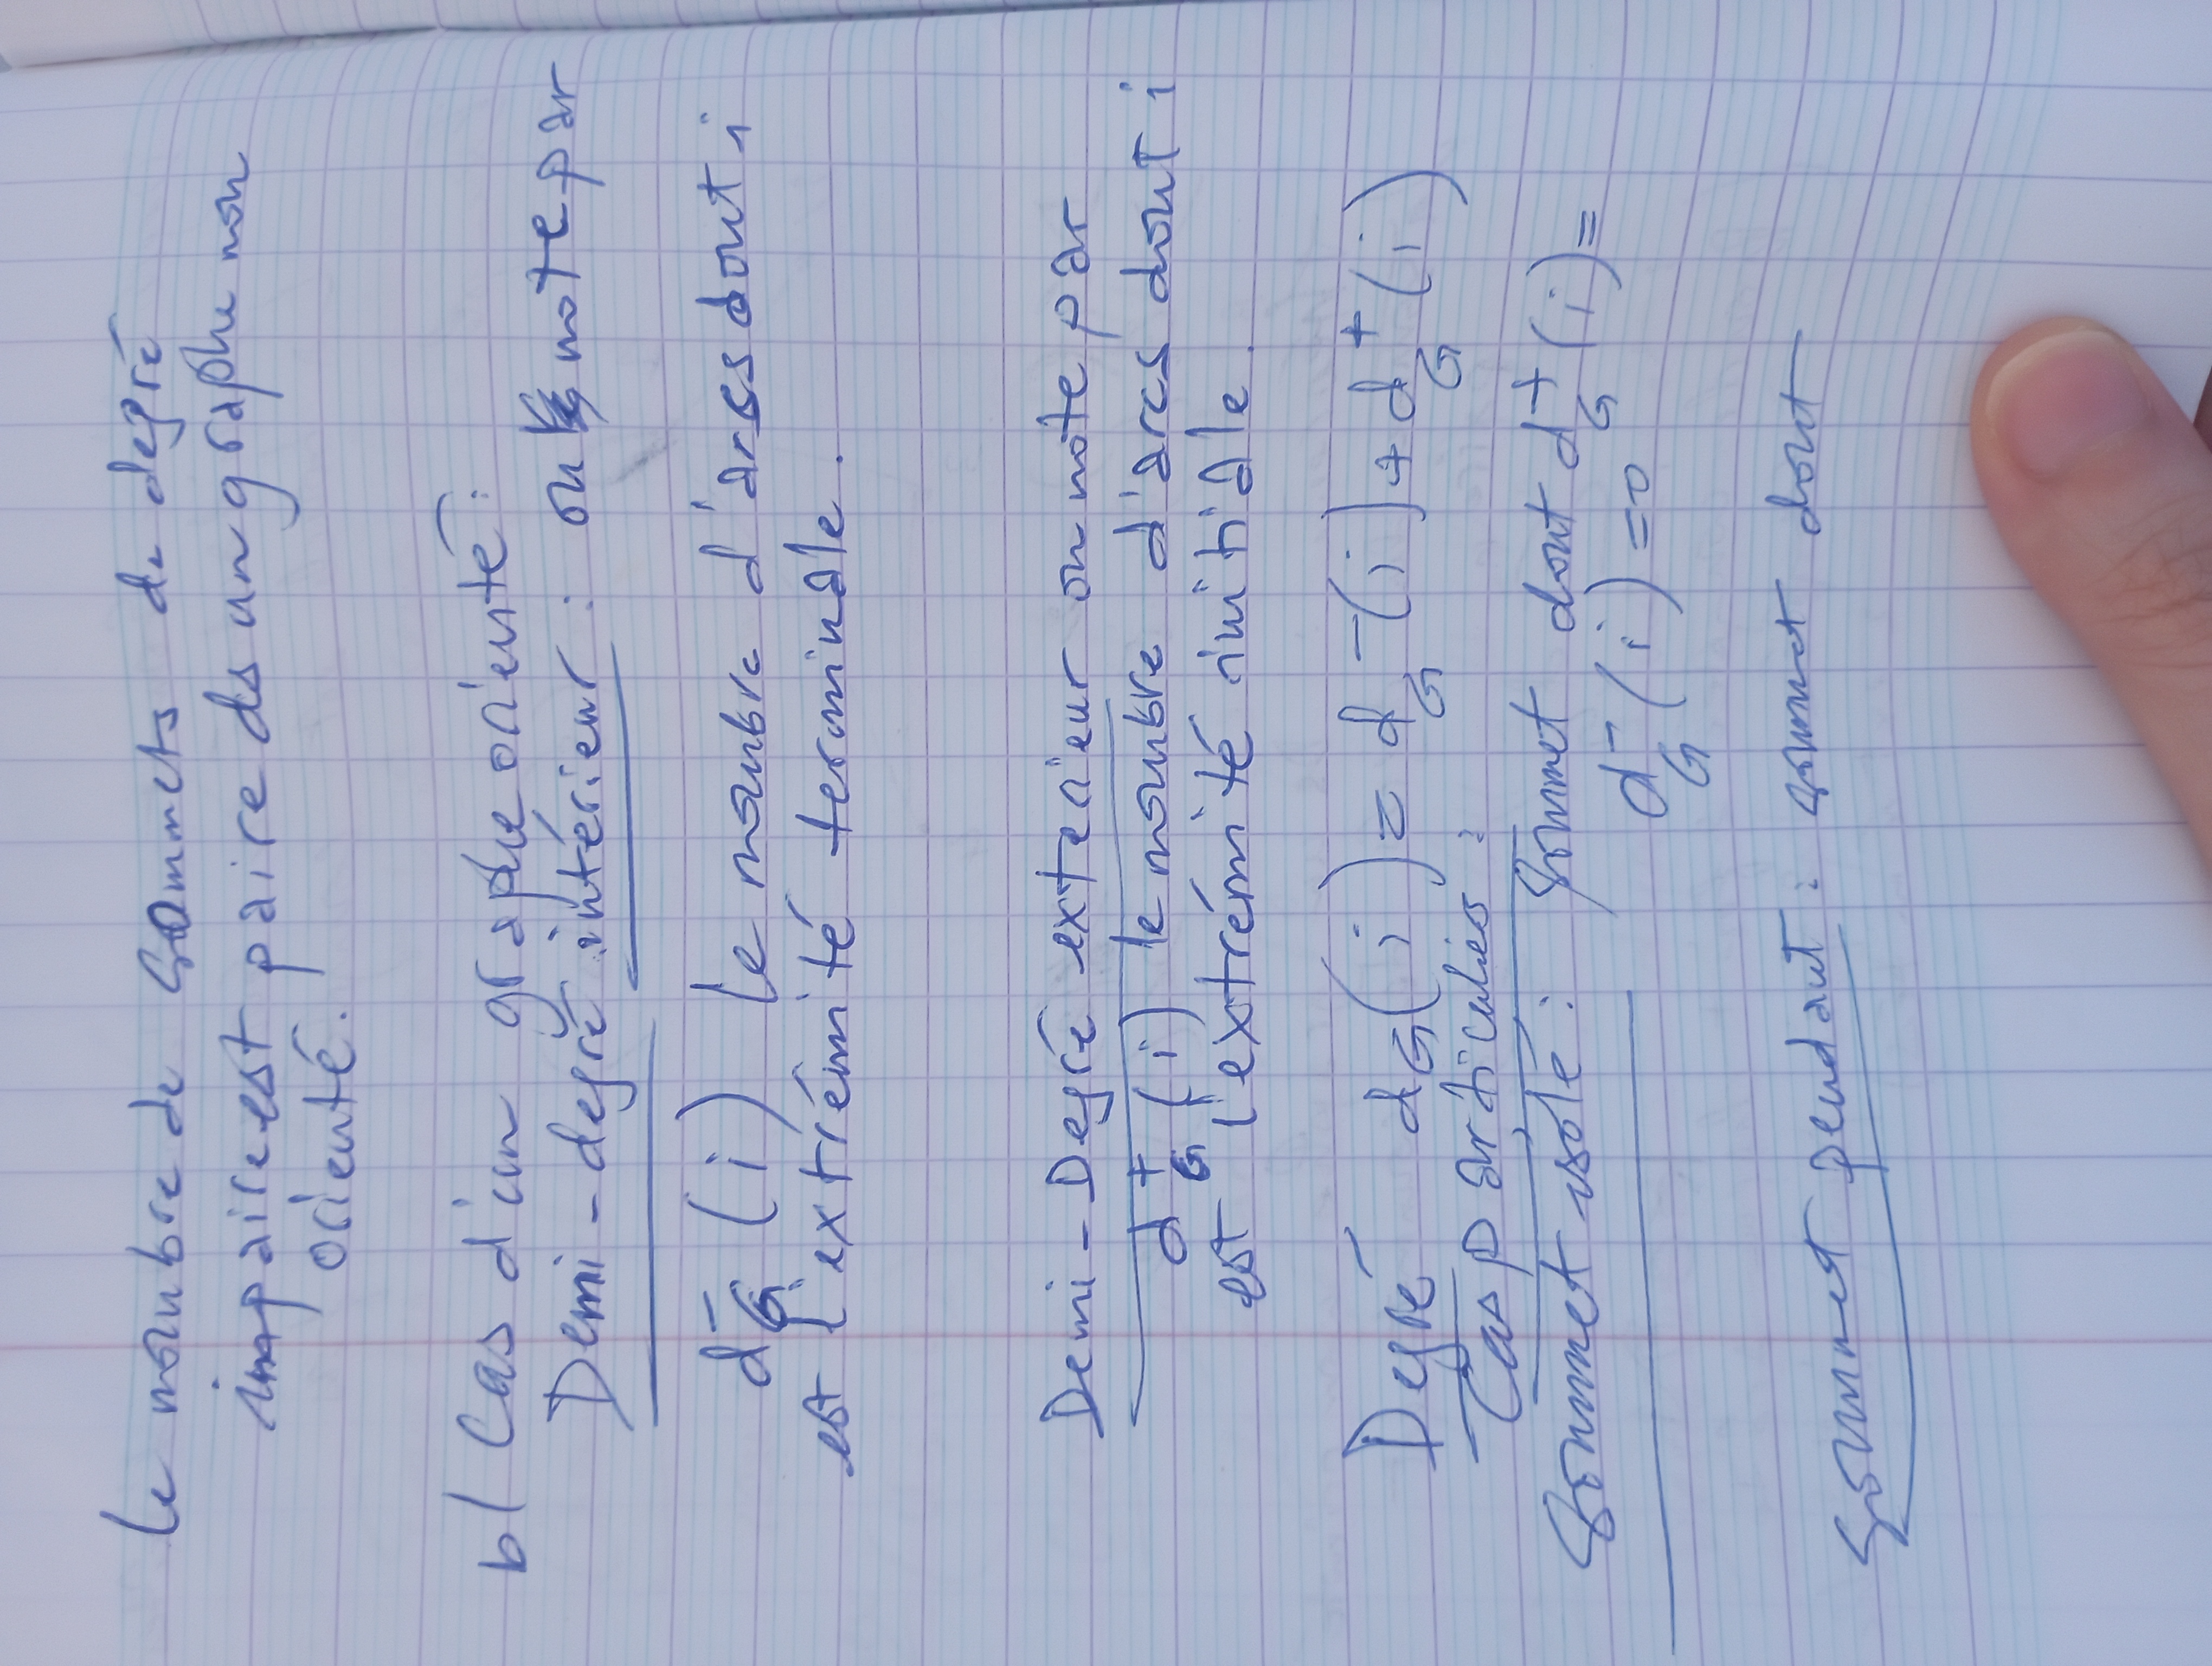 Le nombre de sommets de degré
impaire est paire ds un graphe non
orienté.
b/ Cas d'un graphe orienté :
Demi-degré intérieur : on note par
d⁻G (i) le nombre d'arcs dont i
est l'extrémité terminale.
Demi-Degré exterieur on note par
d⁺G (i) le nombre d'arcs dont i
est l'extrémité initiale.
Degré dG(i) = d⁻G(i) + d⁺G(i)
Cas particulies :
Sommet isolé : Sommet dont d⁺G(i) =
d⁻G(i) = 0
Sommet pendant : sommet dont